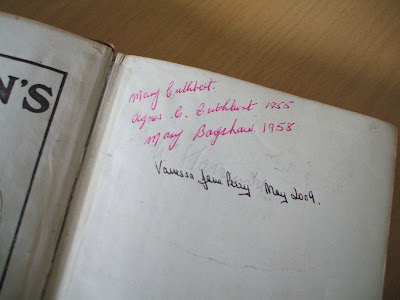 N'S
Mary Cuthbert.
Agnes. C. Cuthbert 1955
Mary Bagshaw 1958
Vanessa Jane Perry May 2009.